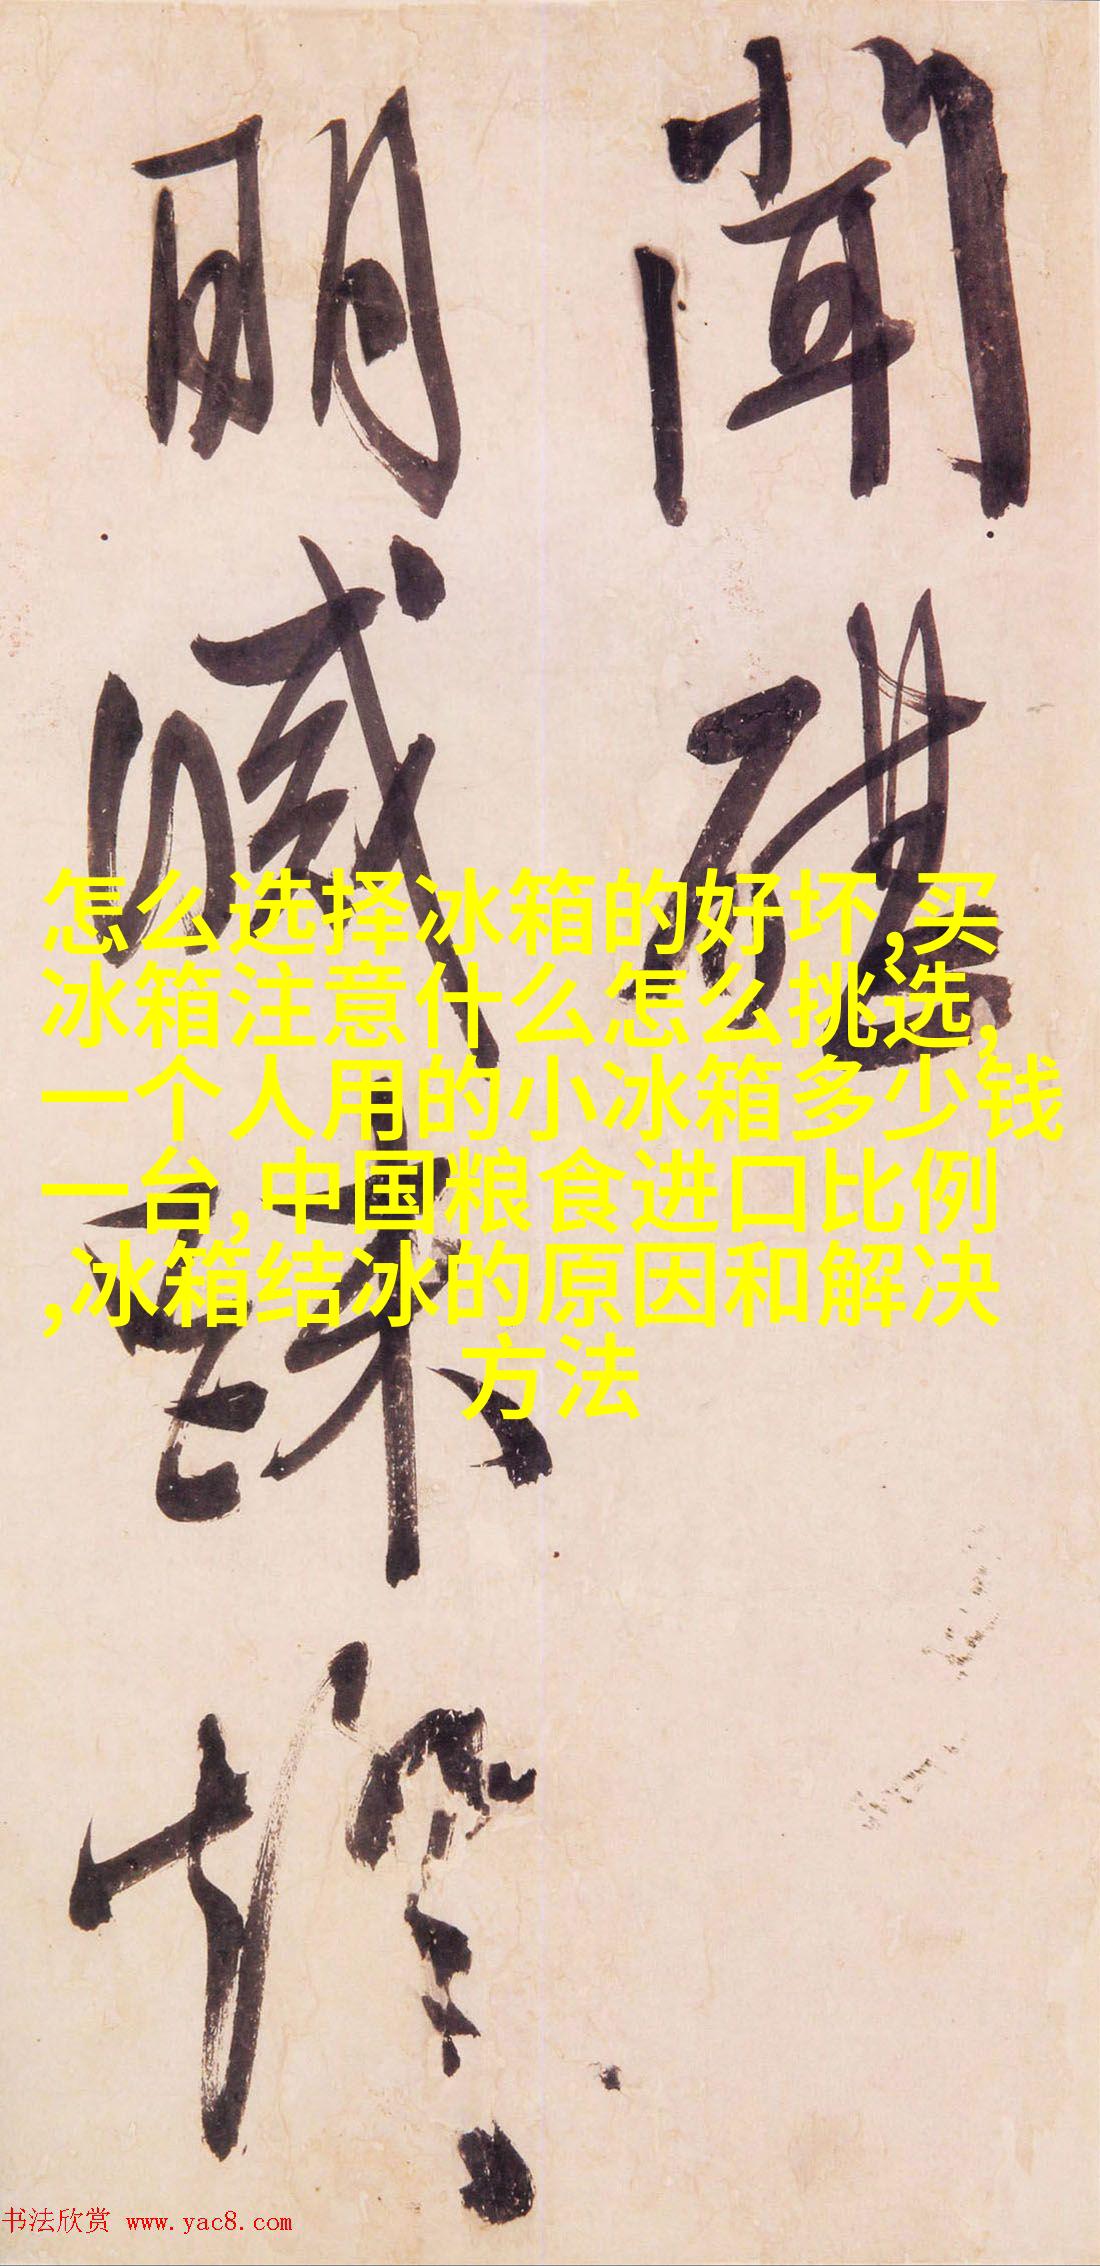 聞
明
怎么选择冰箱的好坏,买
冰箱注意什么怎么挑选,
一个人用的小冰箱多少钱
一台,中国粮食进口比例
,冰箱结冰的原因和解决
方法
书法欣赏 www.yac8.com